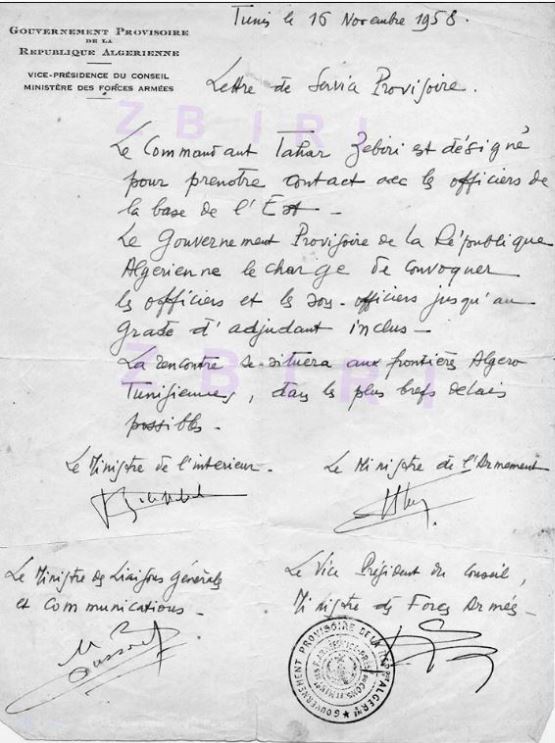 Tunis le 16 Novembre 1958.
GOUVERNEMENT PROVISOIRE
DE LA
REPUBLIQUE ALGERIENNE
VICE-PRÉSIDENCE DU CONSEIL
MINISTÈRE DES FORCES ARMÉES
Lettre de Service Provisoire.
ZBIRI
Le Commandant Tahar Zebiri est désigné
pour prendre contact avec les officiers de
la base de l'Est -
Le Gouvernement Provisoire de la République
Algérienne le charge de convoquer
les officiers et les sous-officiers jusqu'au
grade d'adjudant inclus -
La rencontre se situera aux frontières Algero
ZBIRI
Tunisiennes, dans les plus brefs delais
possibles -
Le Ministre de l'interieur -
Le Ministre de l'Armement
Le Ministre des Liaisons Générales
et communications -
Le Vice Président du Conseil,
Ministre des Forces Armées -
GOUVERNEMENT PROVISOIRE DE LA REP. ALGER